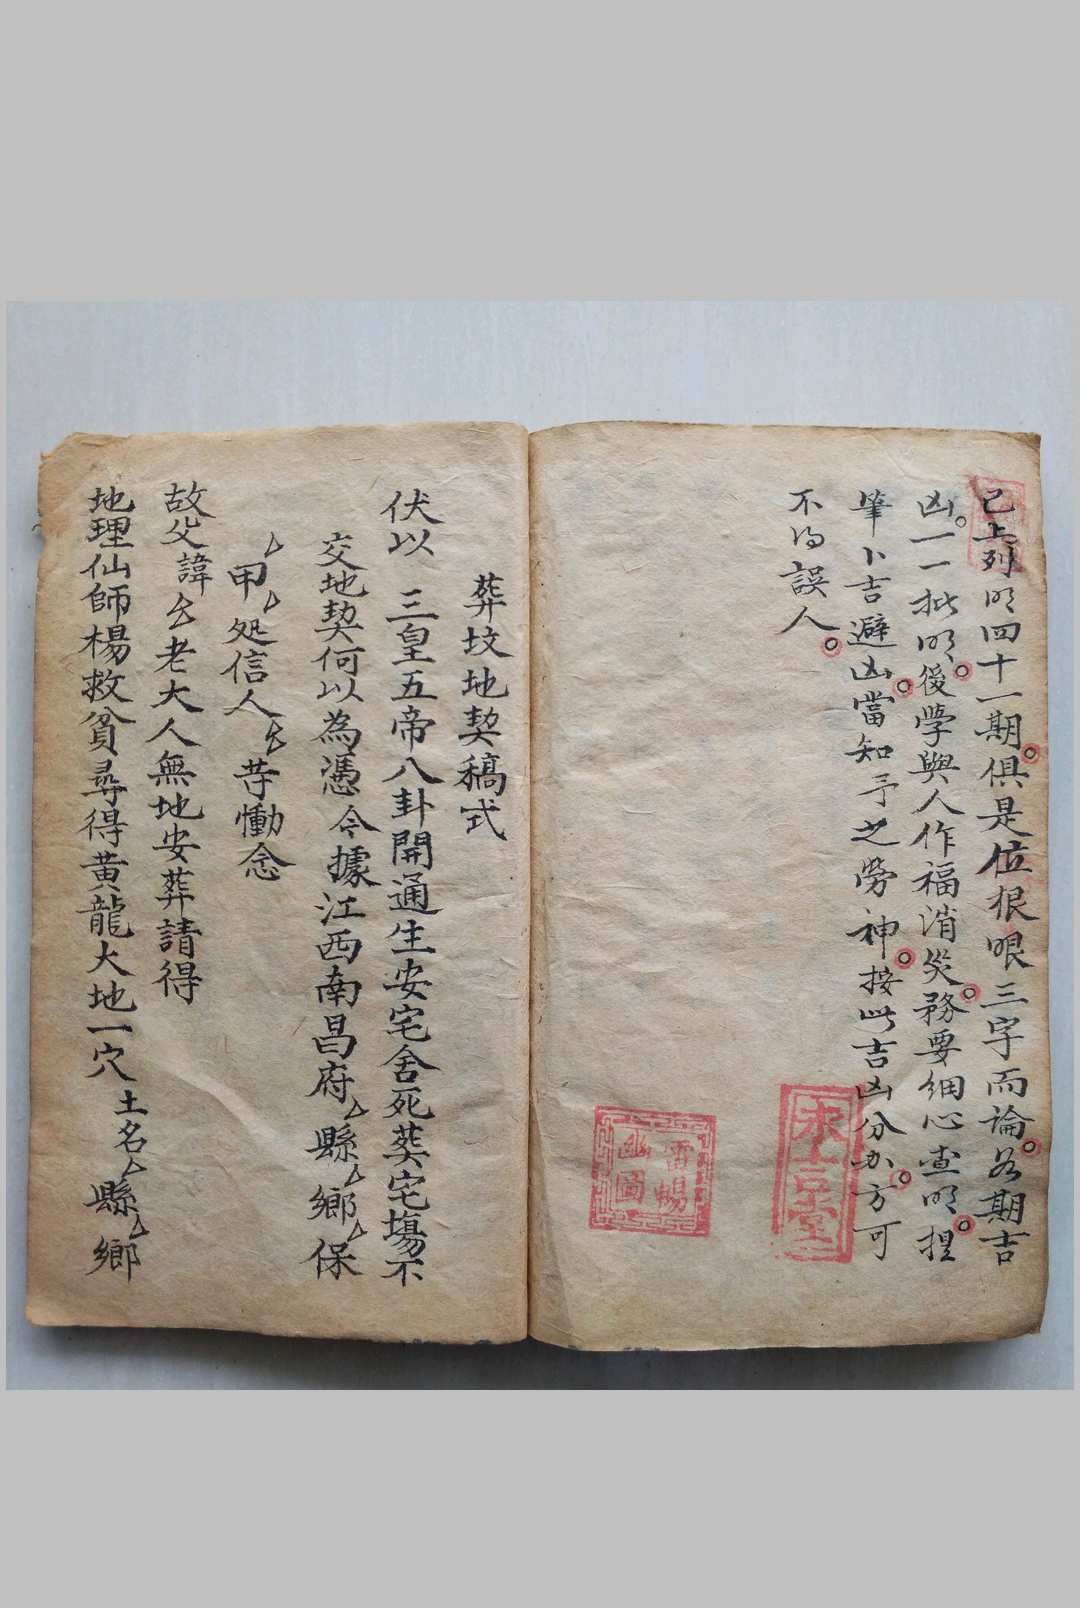 已上列明四十一期俱是位根眼三字而論各期吉
凶一一批明後學與人作福消災務要細心查明捏
筆卜吉避凶當知予之勞神按此吉凶分办方可
不得誤人
雷暢
幽圖
葬坟地契稿式
伏以 三皇五帝八卦開通生安宅舍死葬宅塲不
交地契何以為憑今據江西南昌府厶縣厶鄉厶保
厶甲厶処信人厶等慟念
故父諱厶老大人無地安葬請得
地理仙師楊救貧尋得黄龍大地一穴土名厶縣厶鄉